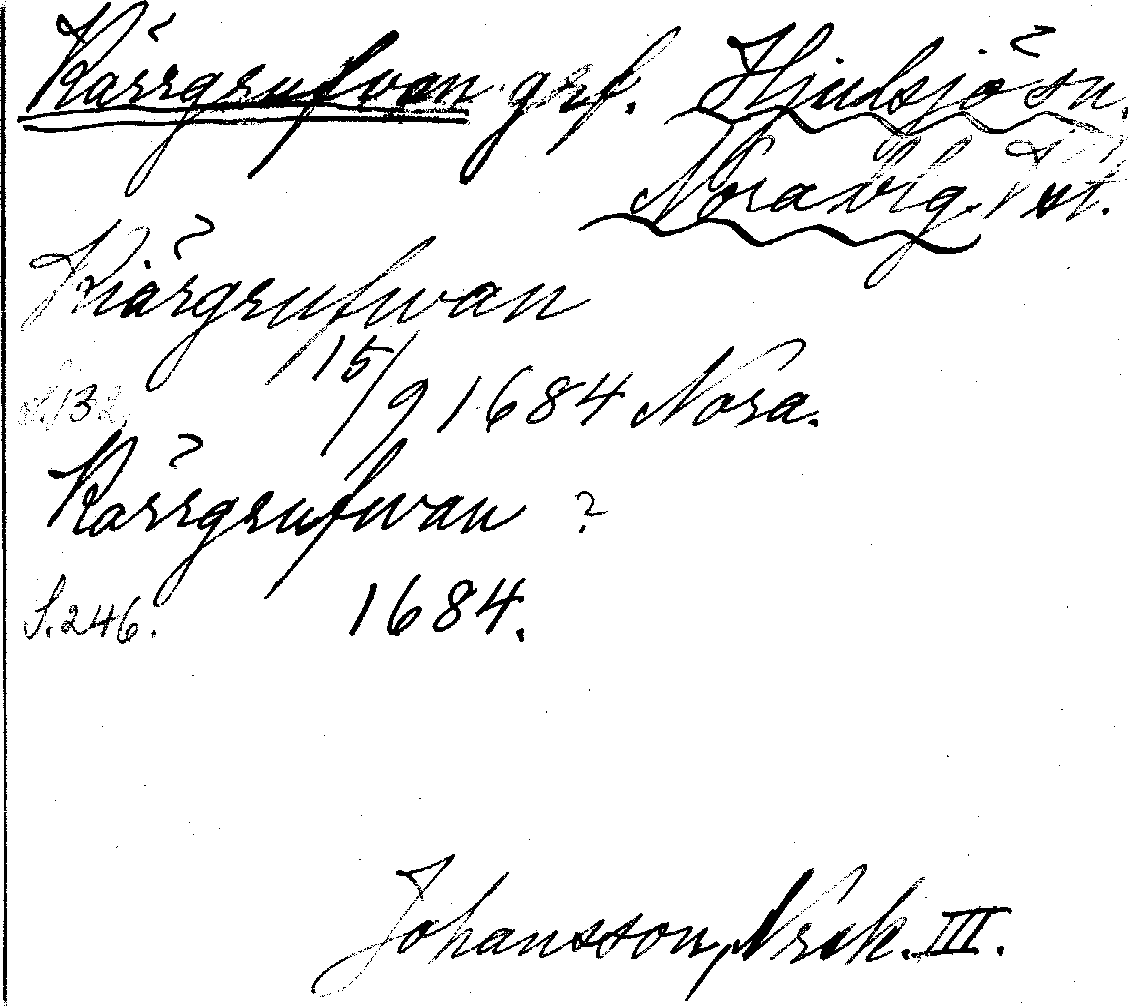 Kärrgrufvan grf. Hjulsjö sn.
Nora brg. Vst.
Kiärgrufwan
15/9 1684 Nora.
S.132.
Kärrgrufwan ?
S.246. 1684.
Johansson, Nrck. III.